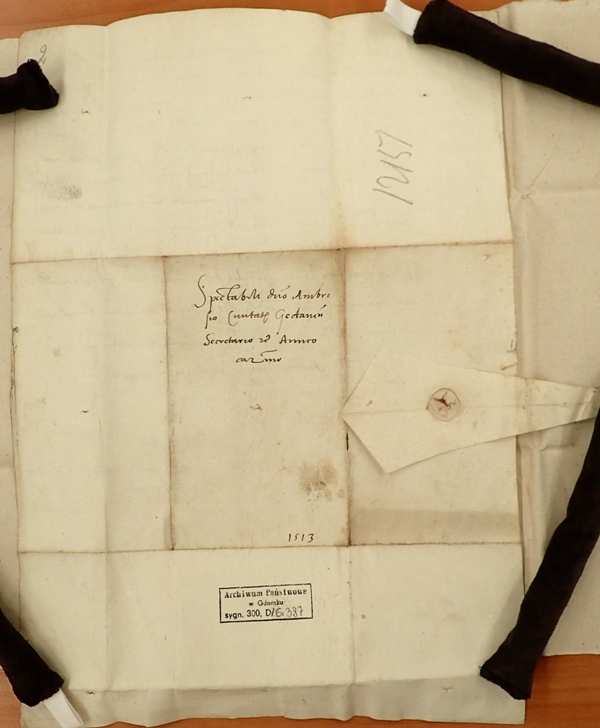 12157
Spectabili dno Ambro
sio Civitatis Gedanen
Secretario et Amico
carmo
1513
Archiwum Państwowe
w Gdańsku
sygn. 300, D/G.387